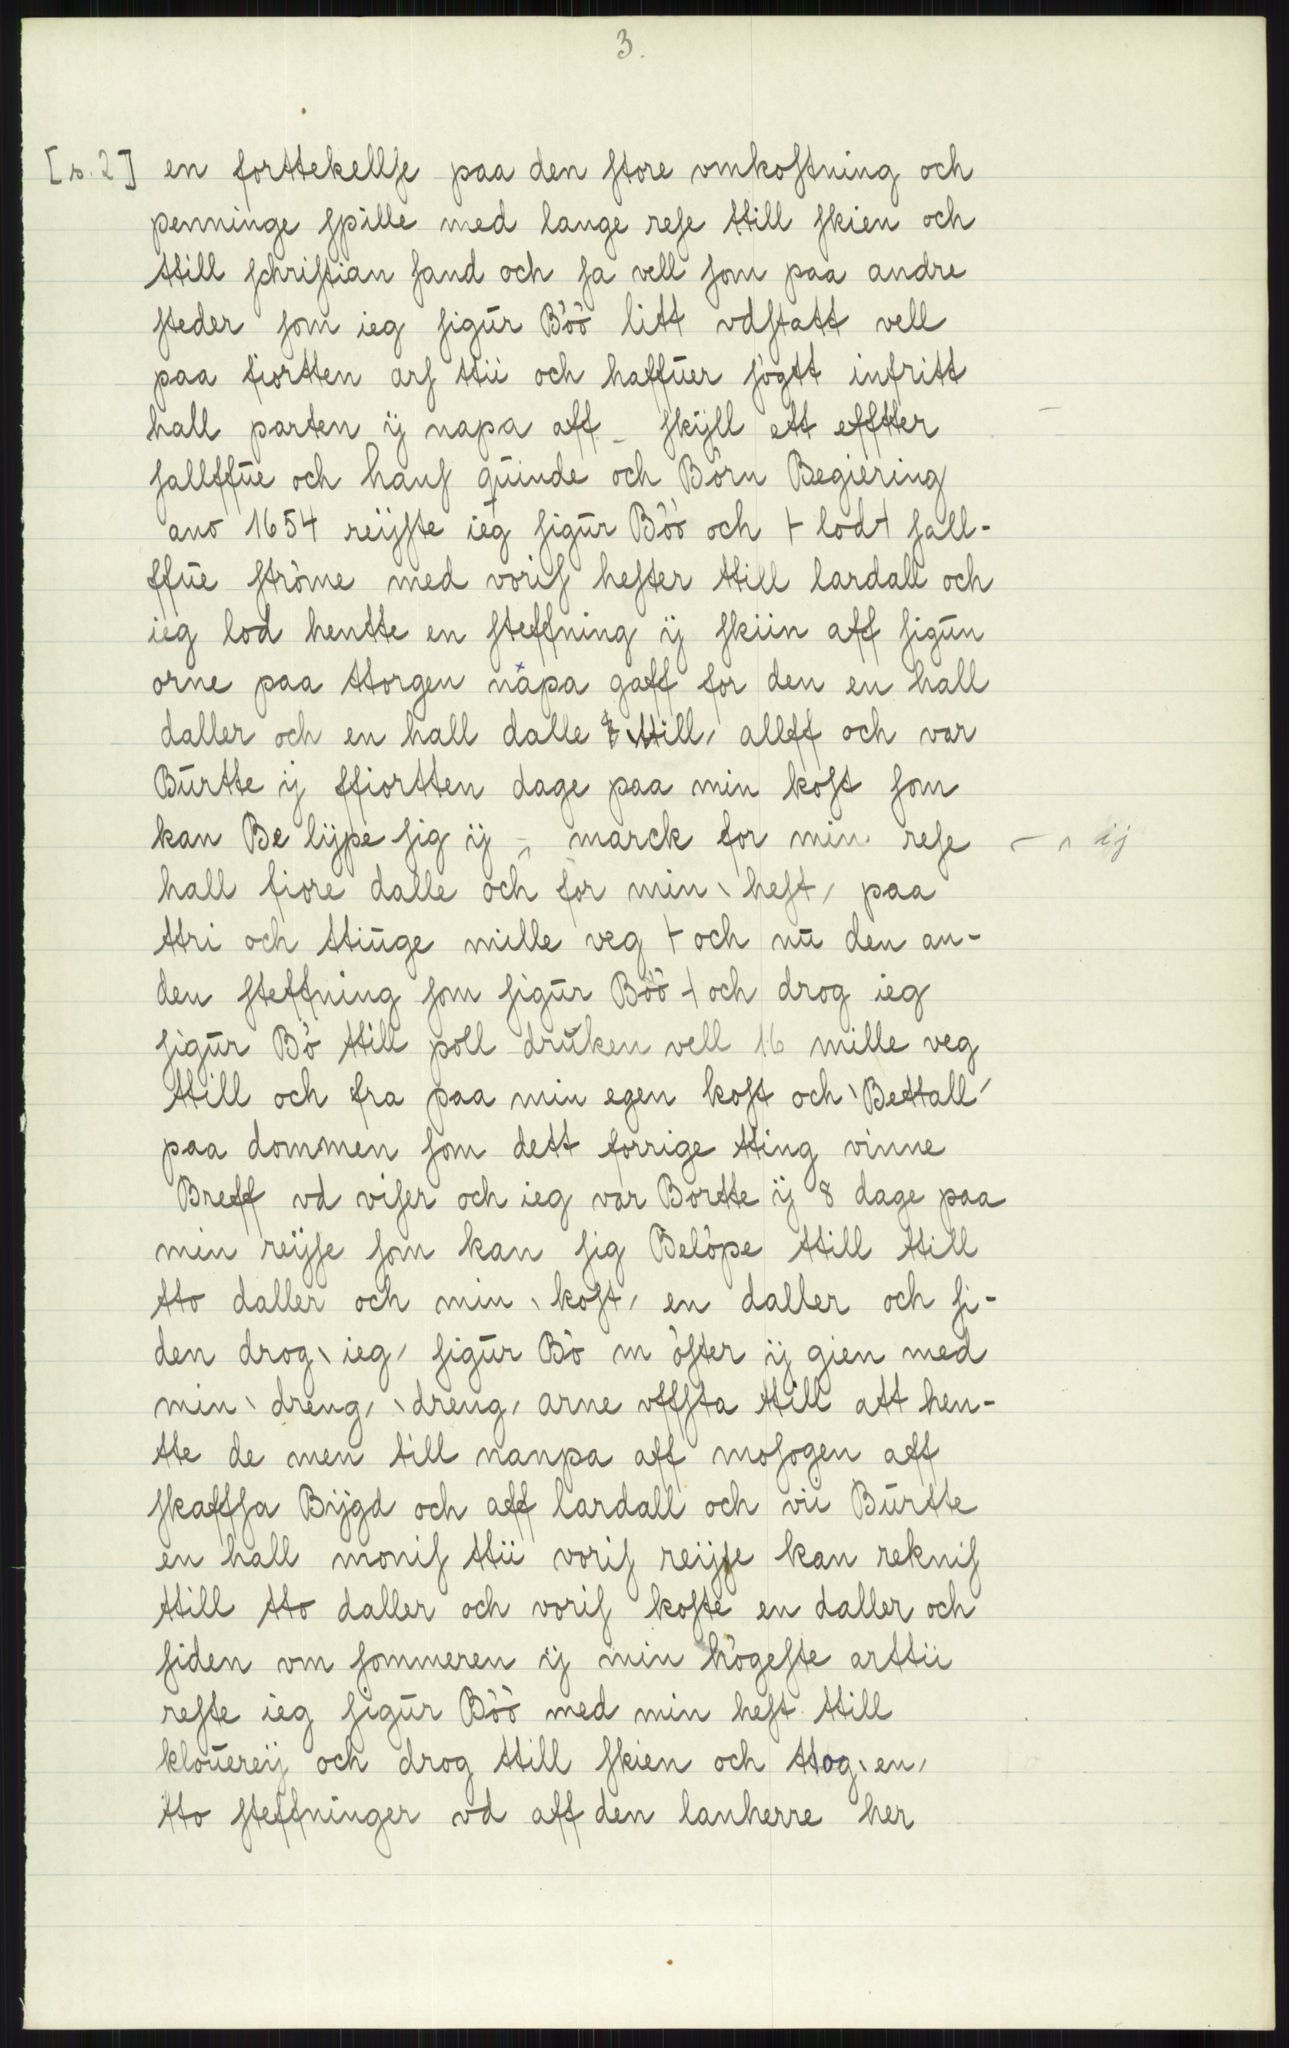 3.
[s. 2] en forttekellse paa den store vmkostning och
penninge spille med lange rese till skien och
till schristian sand och sa vell som paa andre
steder som ieg sigūr Böö litt vdstatt vell
paa fiortten ars tii och haffūer sögtt infritt
hall parten ij napa aff – skijll ett effter
sallffūe och hans qūinde och Börn Begiering
ano 1654 reijste ieg sigūr Böö och + lod + sall-
ffūe ströme med voris hester till lardall och
ieg lod hentte en steffning ij skiin aff sigūn
orne paa ttorgen napa gaff for den en hall
daller och en hall dalle till, allff och var
Būrtte ij ffiortten dage paa min kost som
kan Be lijpe sig ij – marck for min rese – ij
hall fiore dalle och for min \ hest / paa
ttri och ttiūge mille veg + och nū den an-
den steffning som sigūr Böö + och drog ieg
sigūr Bö till poll drūken vell 16 mille veg
till och fra paa min egen kost och \ Bettall /
paa dommen som dett forrige tting vinne
Breff vd viser och ieg var Bortte ij 8 dage paa
min reijse som kan sig Belöpe till till
tto daller och min \ kost / en daller och si-
den drog \ ieg / sigūr Bö m öster ij gien med
min \ dreng / \ dreng / arne vffsta till att hen-
tte de men till nanpa aff mosogen aff
skaffsa Bijgd och aff lardall och vii Būrtte
en hall monis ttii voris reijse kan reknis
till tto daller och voris koste en daller och
siden vm sommeren ij min högeste arttii
reste ieg sigūr Böö med min hest till
kloūereij och drog till skien och ttog \ en /
tto steffninger vd aff den lanherre her